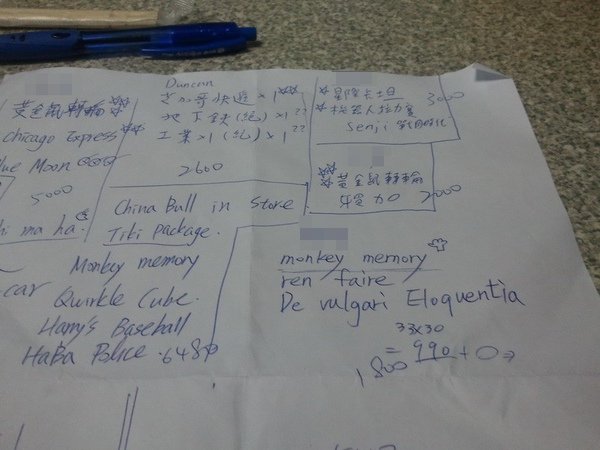 黃金鼠轉輪
Chicago Express
lue Moon
5000
hi ma ha.
car
Duncan
芝加哥快遞 × 1
地下鐵 (絕) × 1 ??
工業 × 1 (絕) × 1 ??
2600
機器人拉力賽
3000
Senji 戰國時代
黃金鼠轉輪
2000
China Bull in Store
Tiki Package.
Monkey memory
Qwirkle Cube.
Harry's Baseball
HaBa Police.
monkey memory
ren faire
De vulgari Eloquentia
33x30
= 990 + 0 ⇒
1800